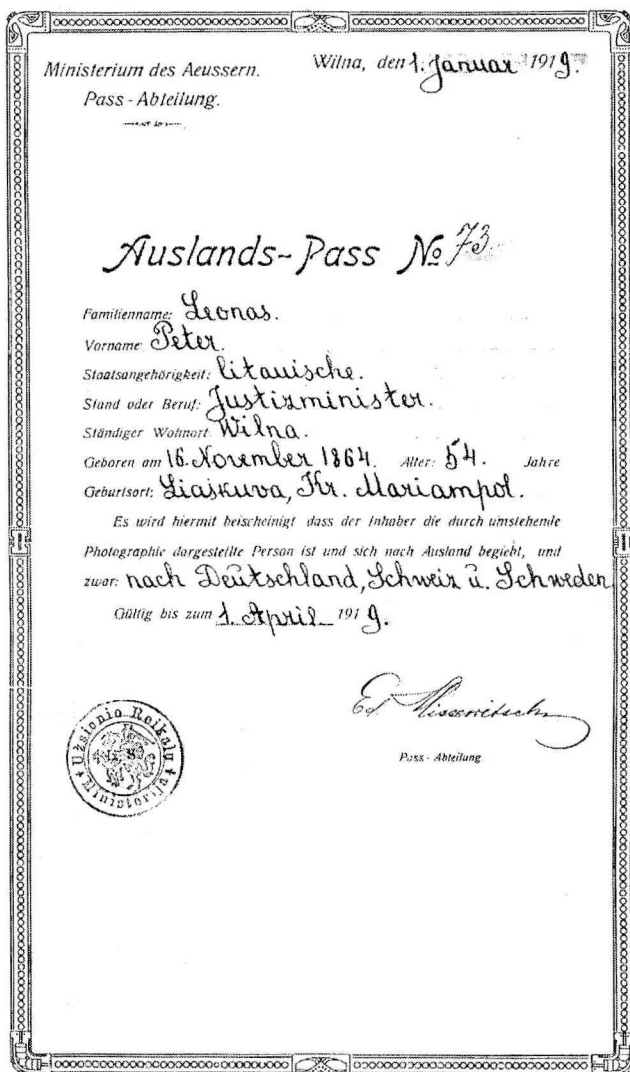 Ministerium des Aeussern.
Pass-Abteilung.
Wilna, den 1. Januar 1919.
Auslands-Pass No 73.
Familienname: Leonas.
Vorname: Peter.
Staatsangehörigkeit: litauische.
Stand oder Beruf: Justizminister.
Ständiger Wohnort: Wilna.
Geboren am 16. November 1864. Alter: 54. Jahre
Geburtsort: Liaskuva, Kr. Mariampol.
Es wird hiermit beischeinigt dass der Inhaber die durch umstehende
Photographie dargestellte Person ist und sich nach Ausland begiebt, und
zwar: nach Deutschland, Schweiz u. Schweden
Gültig bis zum 1. April 1919.
Pass-Abteilung
Užsienio Reikalų Ministerija